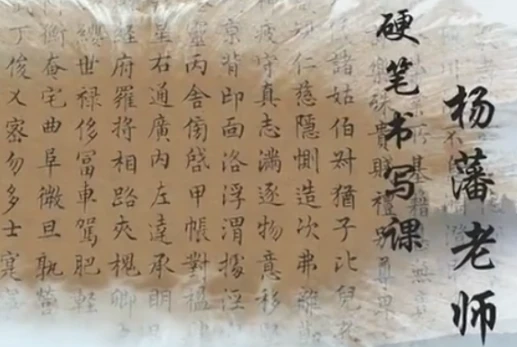 杨藩老师
硬笔书写课
殊貴賤禮別尊卑
諸姑伯叔猶子比兒
仁慈隱惻造次弗離
疲守真志滿逐物意移
京背邙面洛浮渭據涇
靈丙舍傍啓甲帳對楹
星右通廣內左達承明
經府羅將相路夾槐卿
纓世禄侈冨車駕肥輕
衡奄宅曲阜微旦孰營
丁俊乂密勿多士寔